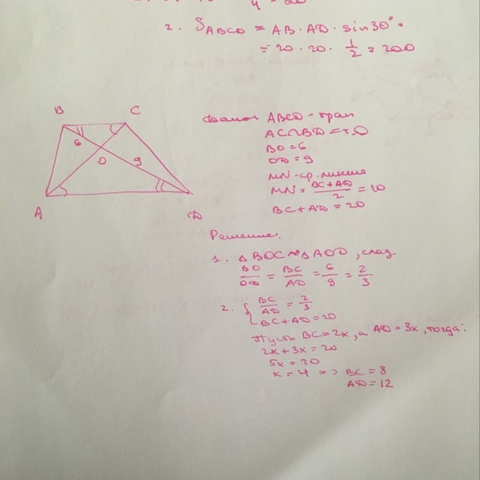 2. SABCD = AB · AD · sin30° =
= 20 · 20 · 1/2 = 200
B C
6 O 9
A D
Дано: ABCD - трап
AC∩BD = т.O
BO = 6
OD = 9
MN - ср. линия
MN = BC + AD / 2 = 10
BC + AD = 20
Решение.
1. △BOC ~ △AOD, след
BO/OD = BC/AD = 6/9 = 2/3
2. { BC/AD = 2/3
BC + AD = 20
Пусть BC = 2x, а AD = 3x, тогда:
2x + 3x = 20
5x = 20
x = 4 => BC = 8
AD = 12